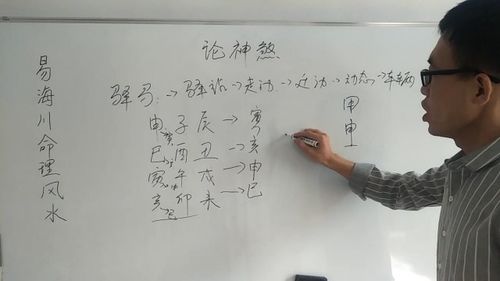 论神煞
易海川命理风水
驿马:→驿站→走动→迁动→动态→车辆
申子辰→寅
巳酉丑→亥
寅午戌→申
亥卯未→巳
甲
申